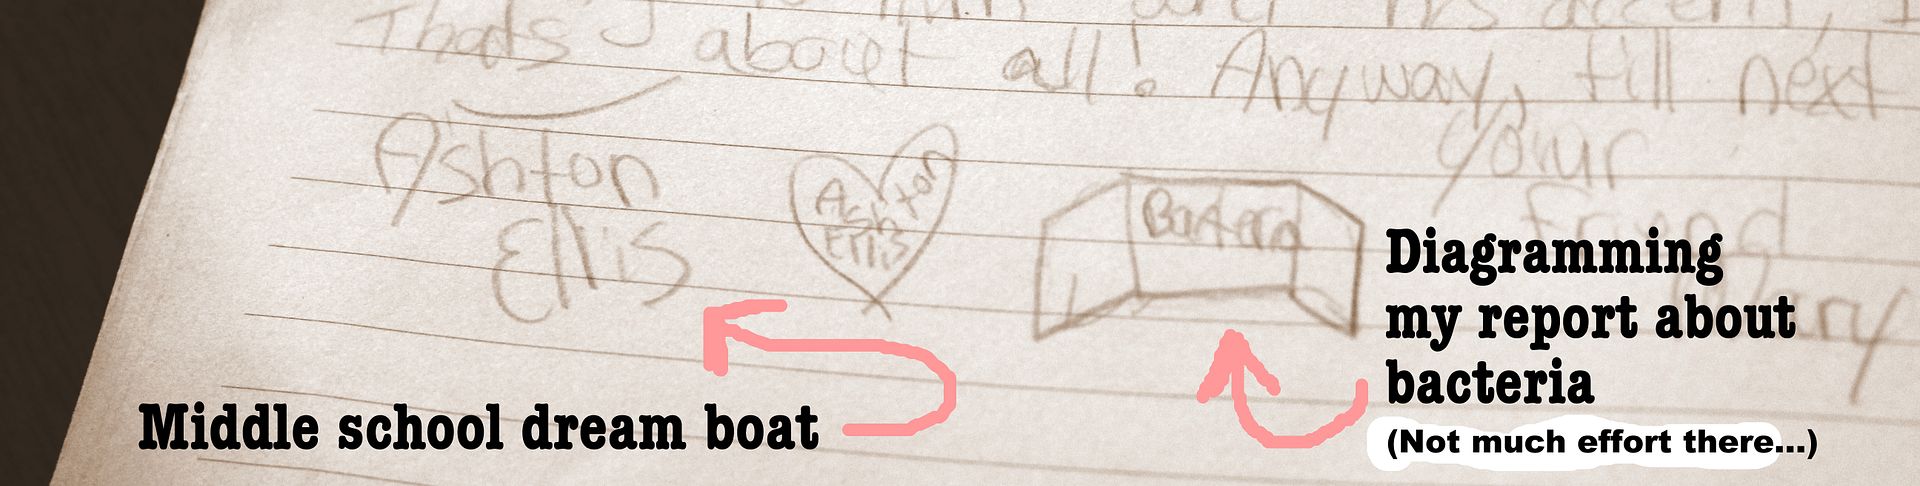 That's about all! Anyway, till next
your
friend
Ashton
Ellis
Ashton
Ellis
Bacteria
Middle school dream boat
Diagramming
my report about
bacteria
(Not much effort there...)